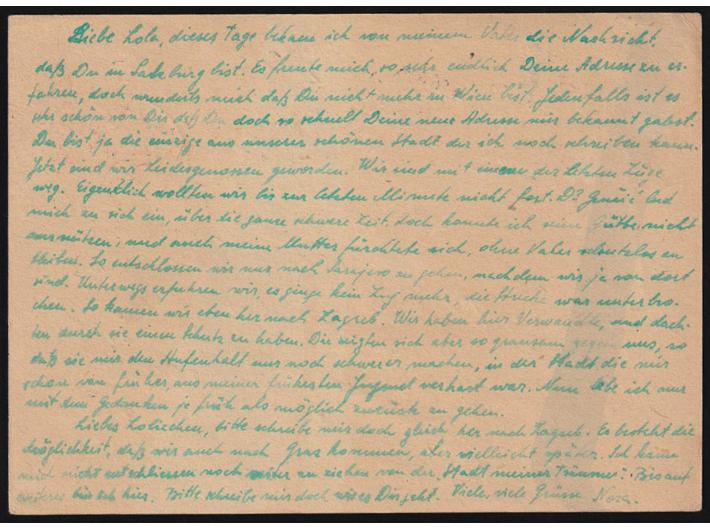 Liebe Lola, dieses Tage bekam ich von meinem Vater die Nachricht,
daß Du in Salzburg bist. Es freute mich, so sehr endlich Deine Adresse zu er-
fahren, doch wunderts mich daß Du nicht mehr in Wien bist. Jedenfalls ist es
sehr schön von Dir daß Du doch so schnell Deine neue Adresse mir bekannt gabst.
Du bist ja die einzige aus unserer schönen Stadt der ich noch schreiben kann.
Jetzt sind wir Leidesgenossen geworden. Wir sind mit einem der letzten Züge
weg. Eigentlich wollten wir bis zur letzten Minute nicht fort. Dr. lud
mich zu sich ein, über die ganze schwere Zeit, doch konnte ich seine Güte nicht
ausnützen, und auch meine Mutter fürchtete sich, ohne Vater schutzlos zu
bleiben. So entschlossen wir uns nach Sarajevo zu gehen, nachdem wir ja von dort
sind. Unterwegs erfuhren wir, es ginge kein Zug mehr, die Strecke war unterbro-
chen. So kamen wir eben her nach Zagreb. Wir haben hier Verwandte, und dach-
ten durch sie einen Schutz zu haben. Die zeigten sich aber so grausam gegen uns, so
daß sie mir den Aufenhalt nur noch schwerer machen, in der Stadt die mir
schon von früher, aus meiner frühesten Jugend verhast war. Nun lebe ich nur
mit dem Gedanken je früh als möglich zurück zu gehen.
Liebes Lolischen, bitte schreibe mir doch gleich her nach Zagreb. Es besteht die
Möglichkeit, daß wir auch nach Graz kommen, aber vielleicht später. Ich kann
mich nicht entschliessen noch weiter zu ziehen von der "Stadt meiner Träume". Bis auf
weiteres bin ich hier. Bitte schreibe mir doch wie es Dir geht. Viele, viele Grüsse Nora.